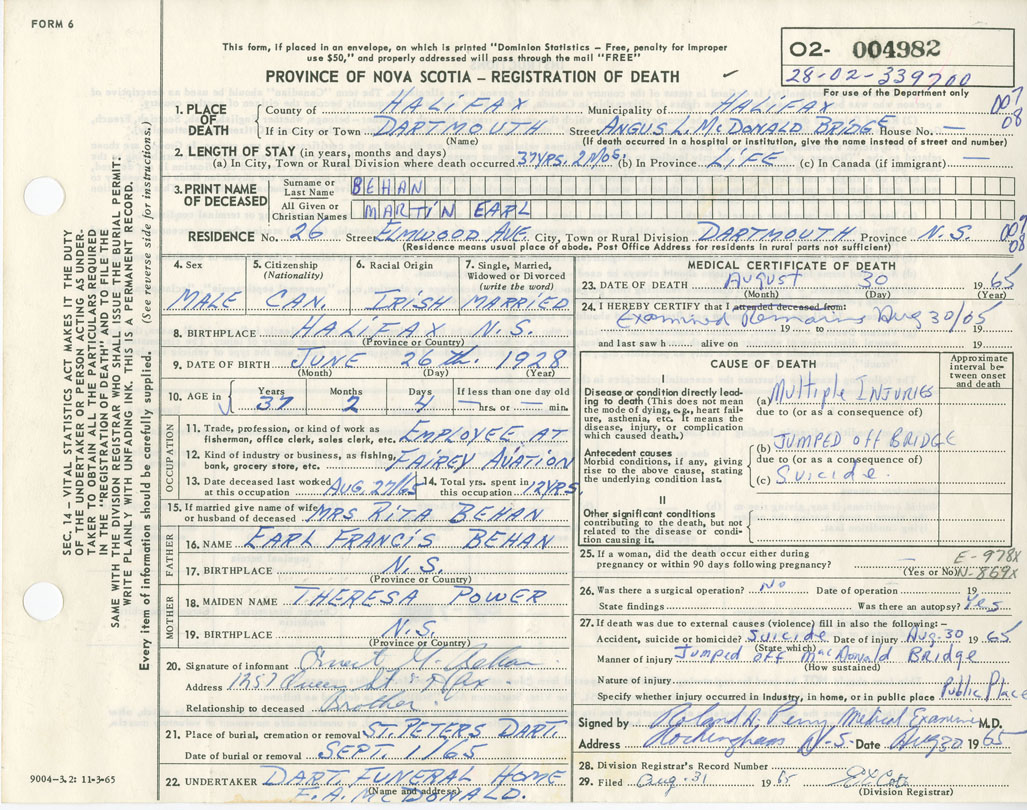 FORM 6
This form, if placed in an envelope, on which is printed "Dominion Statistics – Free, penalty for improper
use $50," and properly addressed will pass through the mail "FREE"
PROVINCE OF NOVA SCOTIA – REGISTRATION OF DEATH ✓
02- 004982
28-02-339700
For use of the Department only
007
08
1. PLACE OF DEATH { County of HALIFAX Municipality of HALIFAX
If in City or Town DARTMOUTH Street ANGUS L. McDONALD BRIDGE House No. —
(Name) (If death occurred in a hospital or institution, give the name instead of street and number)
2. LENGTH OF STAY (in years, months and days)
(a) In City, Town or Rural Division where death occurred 37 YRS. 2 Mos. (b) In Province LIFE (c) In Canada (if immigrant) —
3. PRINT NAME OF DECEASED { Surname or Last Name BEHAN
All Given or Christian Names MARTIN EARL
RESIDENCE No. 26 Street ELMWOOD AVE. City, Town or Rural Division DARTMOUTH Province N.S.
(Residence means usual place of abode. Post Office Address for residents in rural parts not sufficient)
4. Sex MALE
5. Citizenship (Nationality) CAN.
6. Racial Origin IRISH
7. Single, Married, Widowed or Divorced (write the word) MARRIED
8. BIRTHPLACE HALIFAX N.S.
(Province or Country)
9. DATE OF BIRTH JUNE 26 th. 1928
(Month) (Day) (Year)
10. AGE in Years 37 Months 2 Days 4 If less than one day old — hrs. or — min.
OCCUPATION
11. Trade, profession, or kind of work as fisherman, office clerk, sales clerk, etc. EMPLOYEE AT
12. Kind of industry or business, as fishing, bank, grocery store, etc. FAIREY AVATION
13. Date deceased last worked at this occupation AUG 27/65
14. Total yrs. spent in this occupation 12 YRS.
15. If married give name of wife or husband of deceased MRS RITA BEHAN
FATHER
16. NAME EARL FRANCIS BEHAN
17. BIRTHPLACE N.S.
(Province or Country)
MOTHER
18. MAIDEN NAME THERESA POWER
19. BIRTHPLACE N.S.
(Province or Country)
20. Signature of informant
Address 1257 Queen St
Relationship to deceased Brother
21. Place of burial, cremation or removal ST. PETERS DART.
Date of burial or removal SEPT. 1/65
22. UNDERTAKER DART. FUNERAL HOME
(Name and address)
F.A. McDONALD.
MEDICAL CERTIFICATE OF DEATH
23. DATE OF DEATH August 30 1965
(Month) (Day) (Year)
24. I HEREBY CERTIFY that I attended deceased from:
Examined Remains Aug 30/65
19 to 19
and last saw h alive on 19
CAUSE OF DEATH
Approximate interval between onset and death
I
Disease or condition directly leading to death (This does not mean the mode of dying, e.g., heart failure, asthenia, etc. It means the disease, injury, or complication which caused death.)
(a) Multiple INJURIES
due to (or as a consequence of)
Antecedent causes
Morbid conditions, if any, giving rise to the above cause, stating the underlying condition last.
(b) JUMPED off BRIDGE
due to (or as a consequence of)
(c) Suicide.
II
Other significant conditions
contributing to the death, but not related to the disease or condition causing it.
25. If a woman, did the death occur either during pregnancy or within 90 days following pregnancy? —
(Yes or No)
E-978X
N-869X
26. Was there a surgical operation? No Date of operation 19
State findings Was there an autopsy? Yes
27. If death was due to external causes (violence) fill in also the following:–
Accident, suicide or homicide? Suicide Date of injury Aug. 30 1965
(State which)
Manner of injury Jumped off MacDonald Bridge
(How sustained)
Nature of injury
Specify whether injury occurred in Industry, in home, or in public place Public Place
Signed by Roland A. Perry Medical Examiner M.D.
Address Rockingham N.S. Date Aug 30 1965
28. Division Registrar's Record Number
29. Filed Aug. 31 1965
(Division Registrar)
SEC. 14 – VITAL STATISTICS ACT MAKES IT THE DUTY
OF THE UNDERTAKER OR PERSON ACTING AS UNDER-
TAKER TO OBTAIN ALL THE PARTICULARS REQUIRED
IN THE "REGISTRATION OF DEATH" AND TO FILE THE
SAME WITH THE DIVISION REGISTRAR WHO SHALL ISSUE THE BURIAL PERMIT:
WRITE PLAINLY WITH UNFADING INK. THIS IS A PERMANENT RECORD.
Every item of information should be carefully supplied. (See reverse side for instructions.)
9004-3.2: 11-3-65